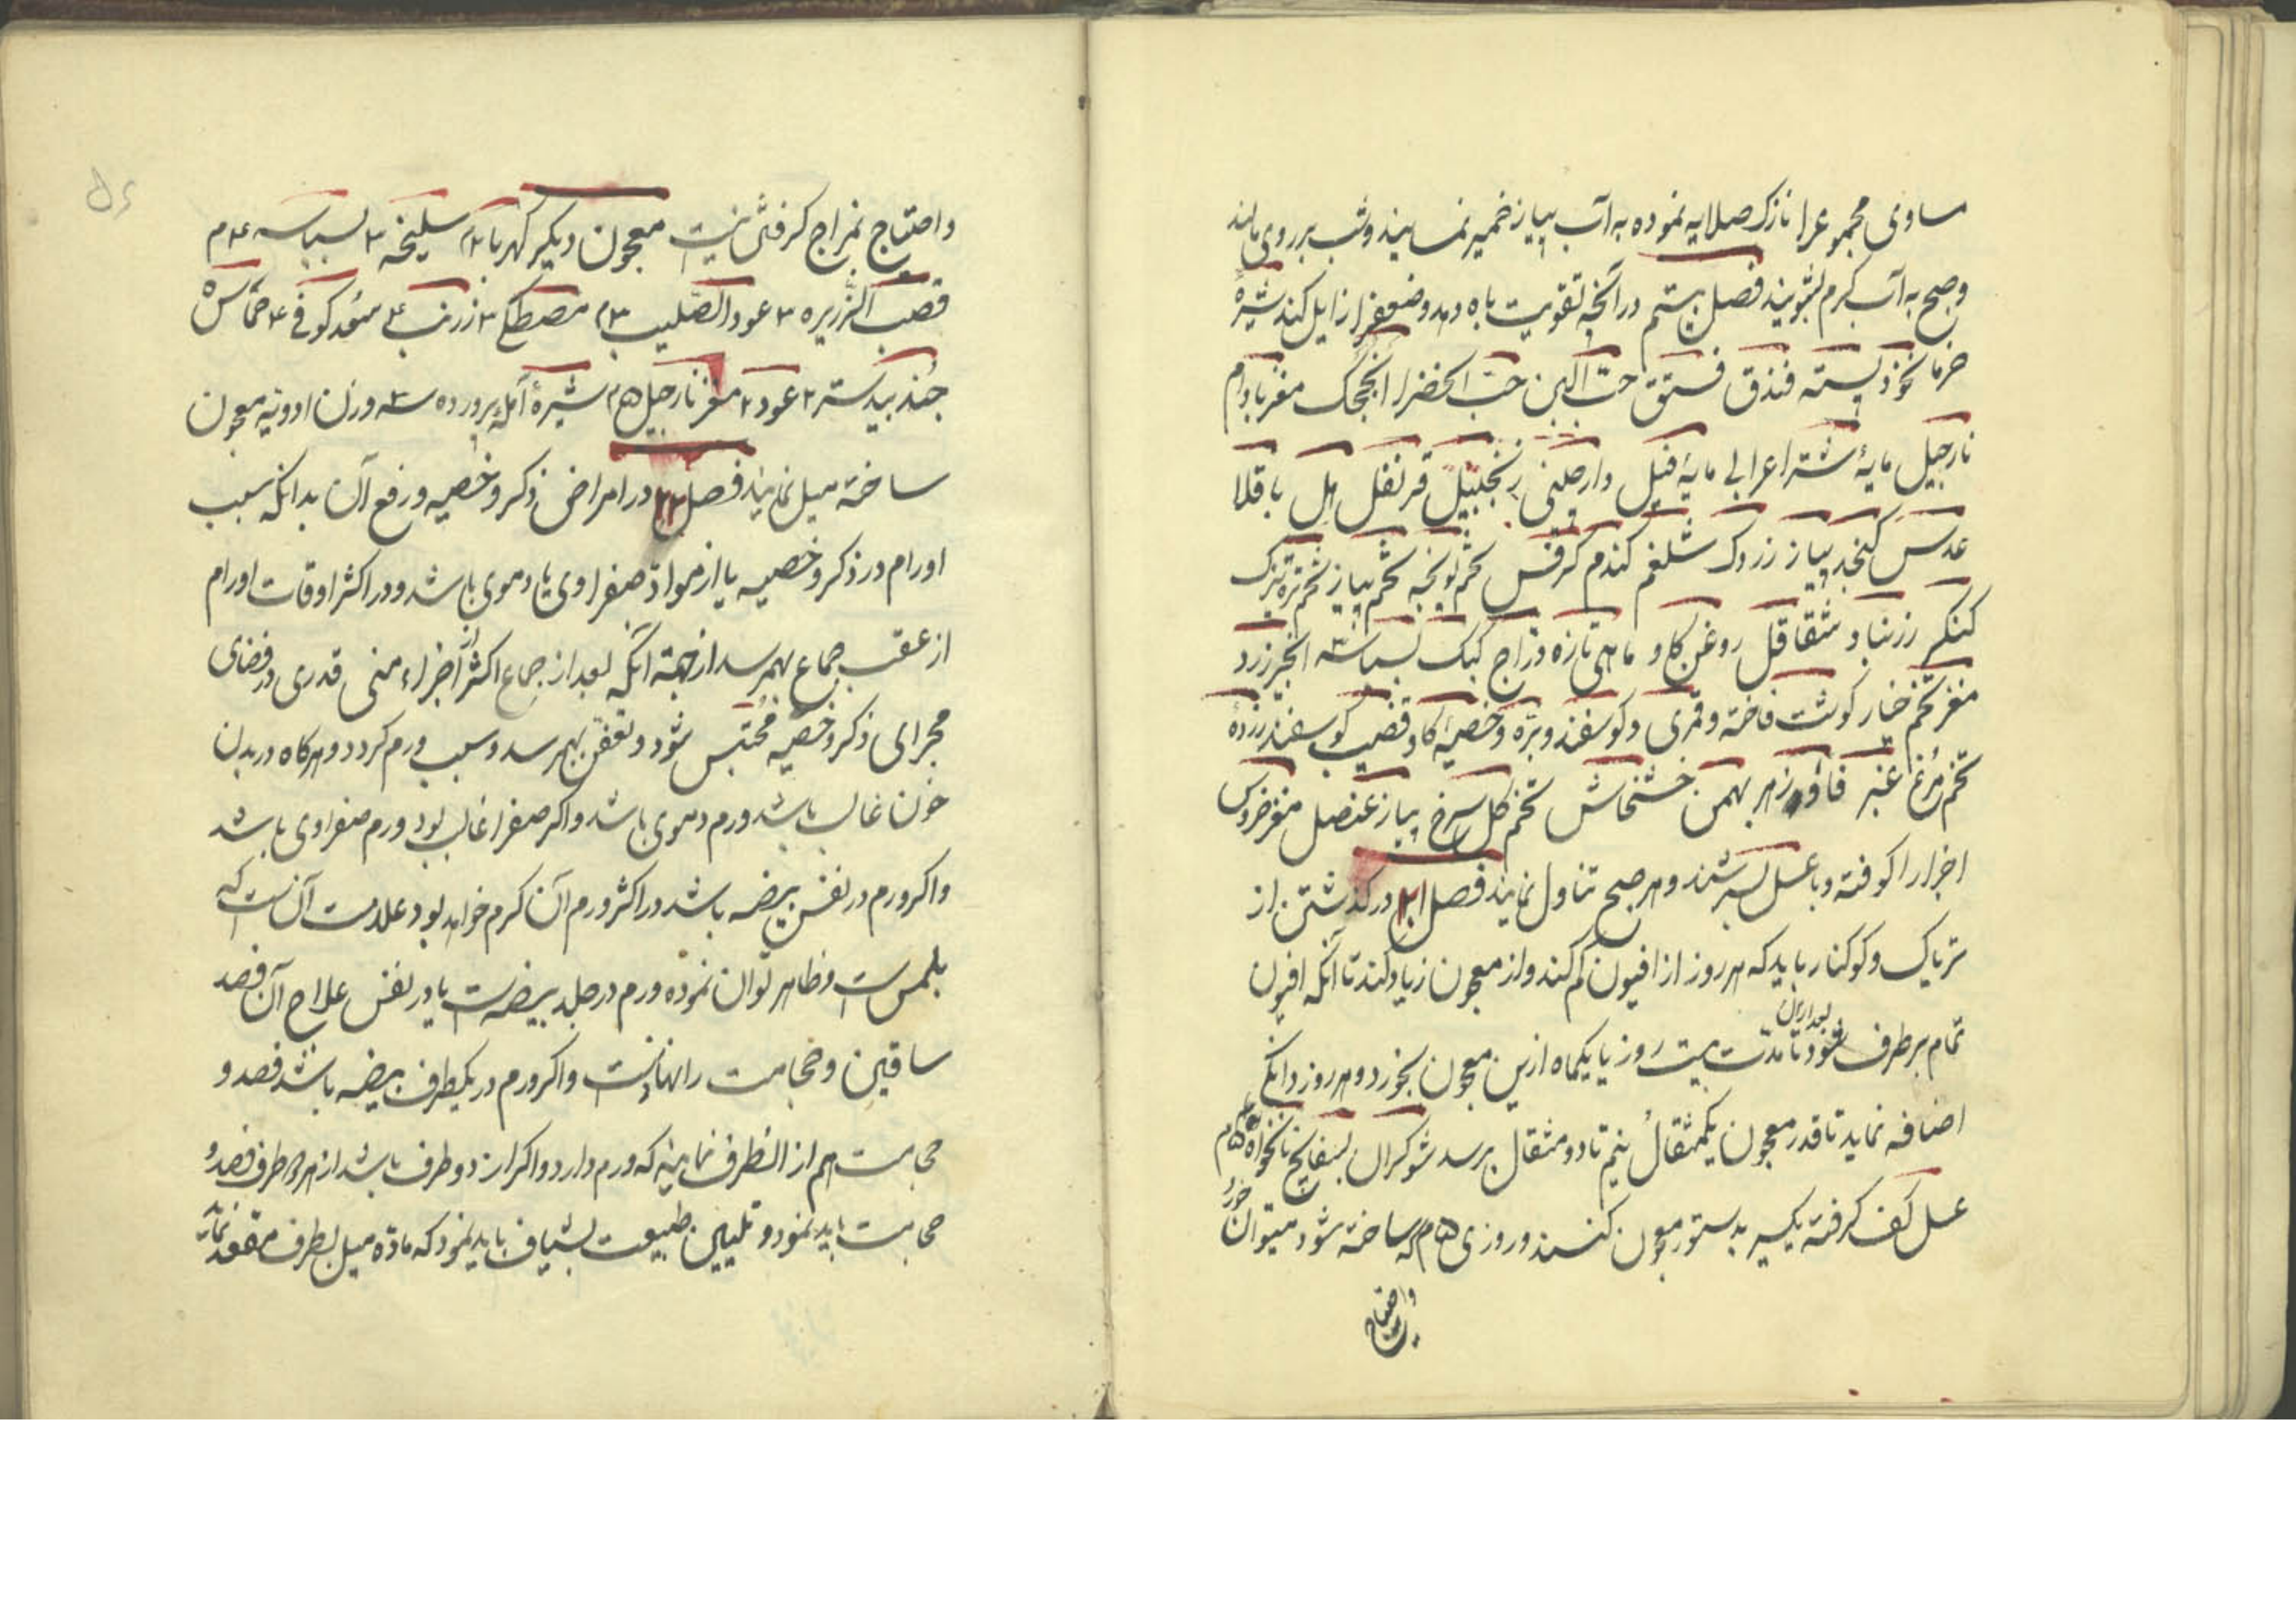 مساوی مجموعرا نازک صلایه نموده به آب پیاز خمیر نمایند وشب بر روی مالند
وصبح به آب کرم بشویند فصل بیستم در آنچه تقویت باه دهد وضعفرا زایل کند شیرهٔ
خرما نخود پسته فندق فستق حب البن حب الخضرا انجکک مغز بادام
نارجیل مایهٔ شتر اعرابی مایهٔ فیل دارچینی زنجبیل قرنفل هل باقلا
عدس کنجد پیاز زردک شلغم کندم کرفس تخم یونجه تخم پیاز تخم تره تیزک
کنکر زرنباد شقاقل روغن کاو ماهی تازه دراج کبک بسباسه انجیر زرد
مغز تخم خیار کوشت فاخته وقمری وکوسفند وبره وخصیهٔ کاو قضیب کوسفند زردهٔ
تخم مرغ عنبر فاوزهر بهمن خشخاش تخم کل سرخ پیاز عنصل مغز خروس
اجزا را کوفته وبا عسل بسرشند وهر صبح تناول نمایند فصل ۲۱ در کذشتن از
تریاک وکوکنار باید که هر روز از افیون کم کند واز معجون زیاد کند تا آنکه افیون
تمام برطرف شود بعد ازان تا مدت بیست روز یا یکماه ازین معجون بخورد وهر روز دانکی
اضافه نماید تا قدر معجون یکمثقال نیم تا دو مثقال برسد شوکران بسفایج نانخواه ۵م
عسل کف کرفته یکسیر بدستور معجون کنند وروزی ۵م که ساخته شود میتوان خورد
واحتیاج
واحتیاج بمزاج کرفتش نیست معجون دیکر کهربا ۲م سلیخه ۳ بسباسه ۴م
قصب الذریره ۳ عود الصلیب ۳م مصطکی ۳ زرنب ۴ سعد کوفی ۴ حماس ۵
جند بیدستر ۲ عود ۲ مغز نارجیل ۵م شیرهٔ آمله پرورده سه وزن ادویه معجون
ساخته میل نمایند فصل ۲۲ در امراض ذکر وخصیه ورفع آن بدانکه سبب
اورام در ذکر وخصیه یا از مواد صفراوی یا دموی باشد ودر اکثر اوقات اورام
از عقب جماع بهمرسد از جهة آنکه بعد از جماع اکثر از اجزاء منی قدری در فضای
مجرای ذکر وخصیه محتبس شود وتعفن بهمرسد وسبب ورم کردد وهرکاه در بدن
خون غالب باشد ورم دموی باشد واکر صفرا غالب بود ورم صفراوی باشد
واکر ورم در نفس بیضه باشد در اکثر ورم آن کرم خواهد بود علامت آن آنست که
بلمس وظاهر توان نموده ورم در جلد بیضه است یا در نفس علاج آن فصد
ساقین وحجامت رانهاست واکر ورم در یکطرف بیضه باشد فصد و
حجامت هم از انطرف نمایند که ورم دارد واکر از دو طرف باشد از هر دو طرف فصد و
حجامت باید نمود وتلیین طبیعت بشیاف باید نمود که ماده میل بطرف مقعد نماید